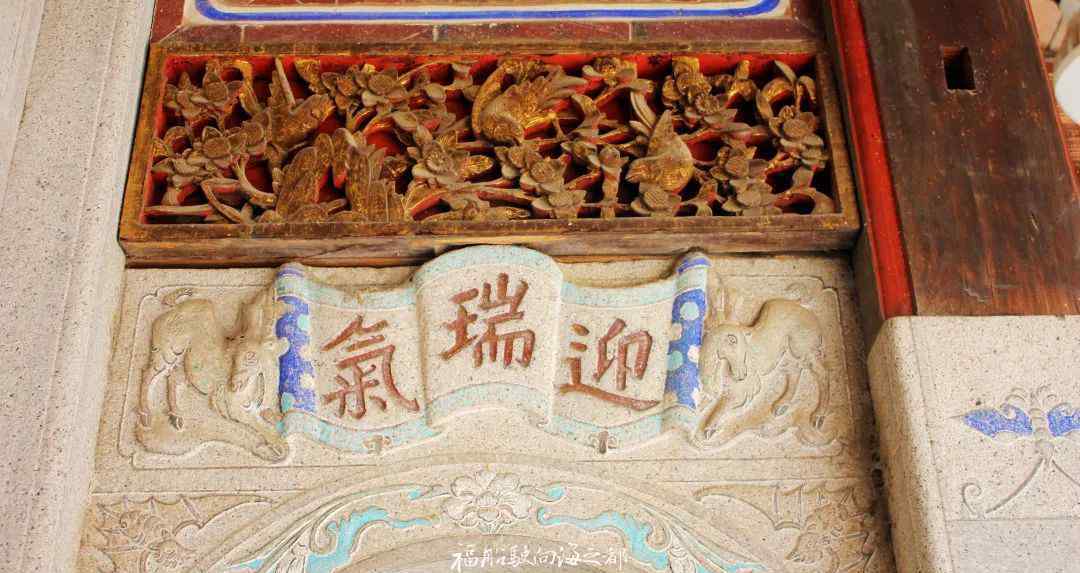 迎瑞氣
福船駛向海之都